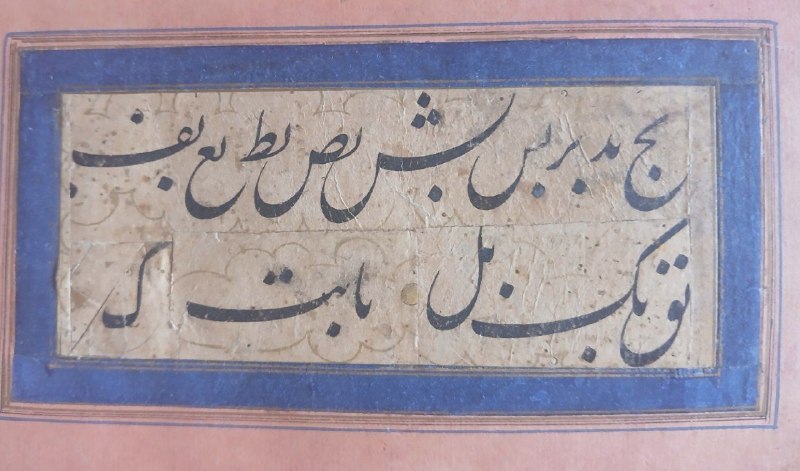 بج بد بر بس بش بص بط بع بف
بق بک بل با بت ک